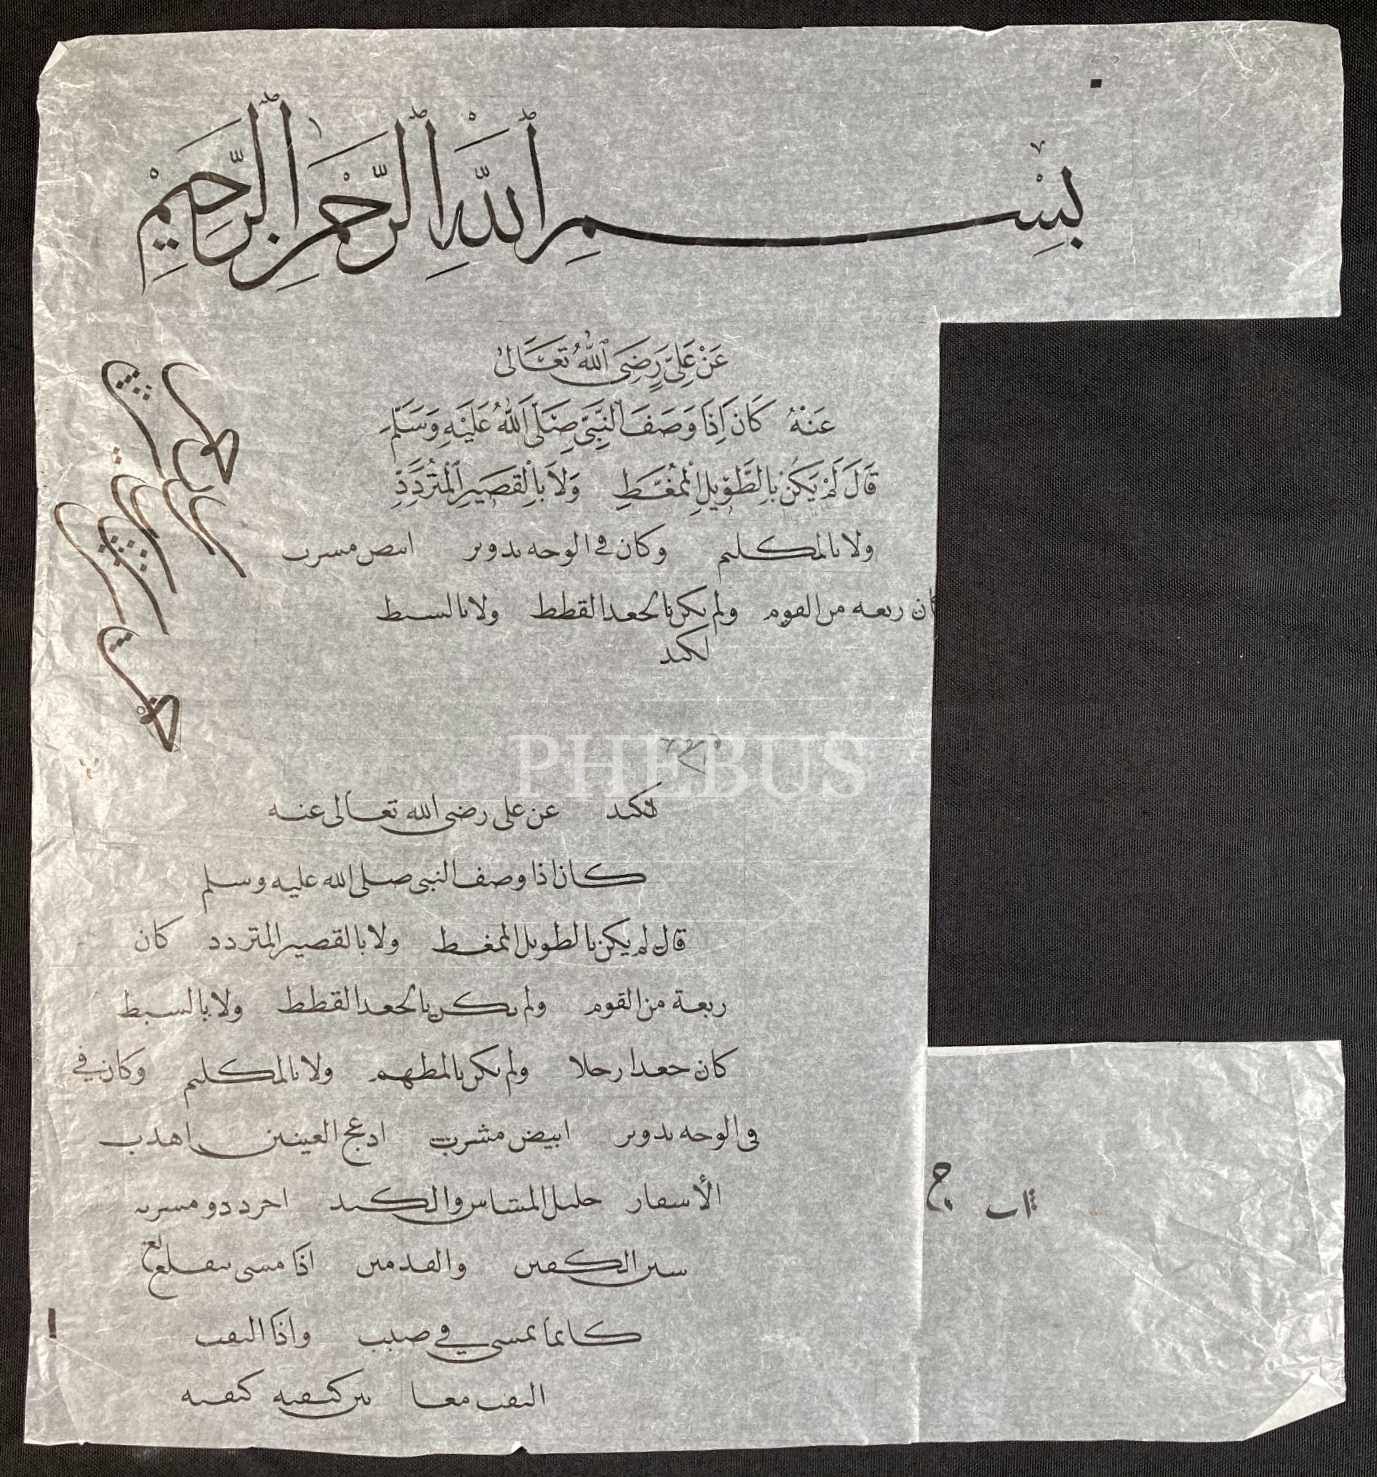 بِسْمِ ٱللَّهِ ٱلرَّحْمٰنِ ٱلرَّحِيمِ
عَنْ عَلِيٍّ رَضِيَ ٱللهُ تَعَالٰى
عَنْهُ كَانَ اِذَا وَصَفَ النَّبِيَّ صَلَّى اللهُ عَلَيْهِ وَسَلَّمَ
قَالَ لَمْ يَكُنْ بِالطَّوِيلِ الْمُمَّغَطِ وَلَا بِالْقَصِيرِ الْمُتَرَدِّدِ
ولا بالمكلثم وكان في الوجه تدوير ابيض مشرب
كان ربعة من القوم ولم يكن بالجعد القطط ولا بالسبط
لكتد
PHEBUS
لكتد عن على رضى الله تعالى عنه
كان اذا وصف النبى صلى الله عليه وسلم
قال لم يكن بالطويل الممغط ولا بالقصير المتردد كان
ربعة من القوم ولم يكن بالجعد القطط ولا بالسبط
كان جعدا رجلا ولم يكن بالمطهم ولا بالمكلثم وكان في
فى الوجه تدوير ابيض مشرب ادعج العينين اهدب
الأشفار جليل المشاش والكتد اجرد ذو مسربة
شثن الكفين والقدمين اذا مشى تقلع
كانما يمشى في صبب واذا التفت
التفت معا بين كتفيه كتفيه